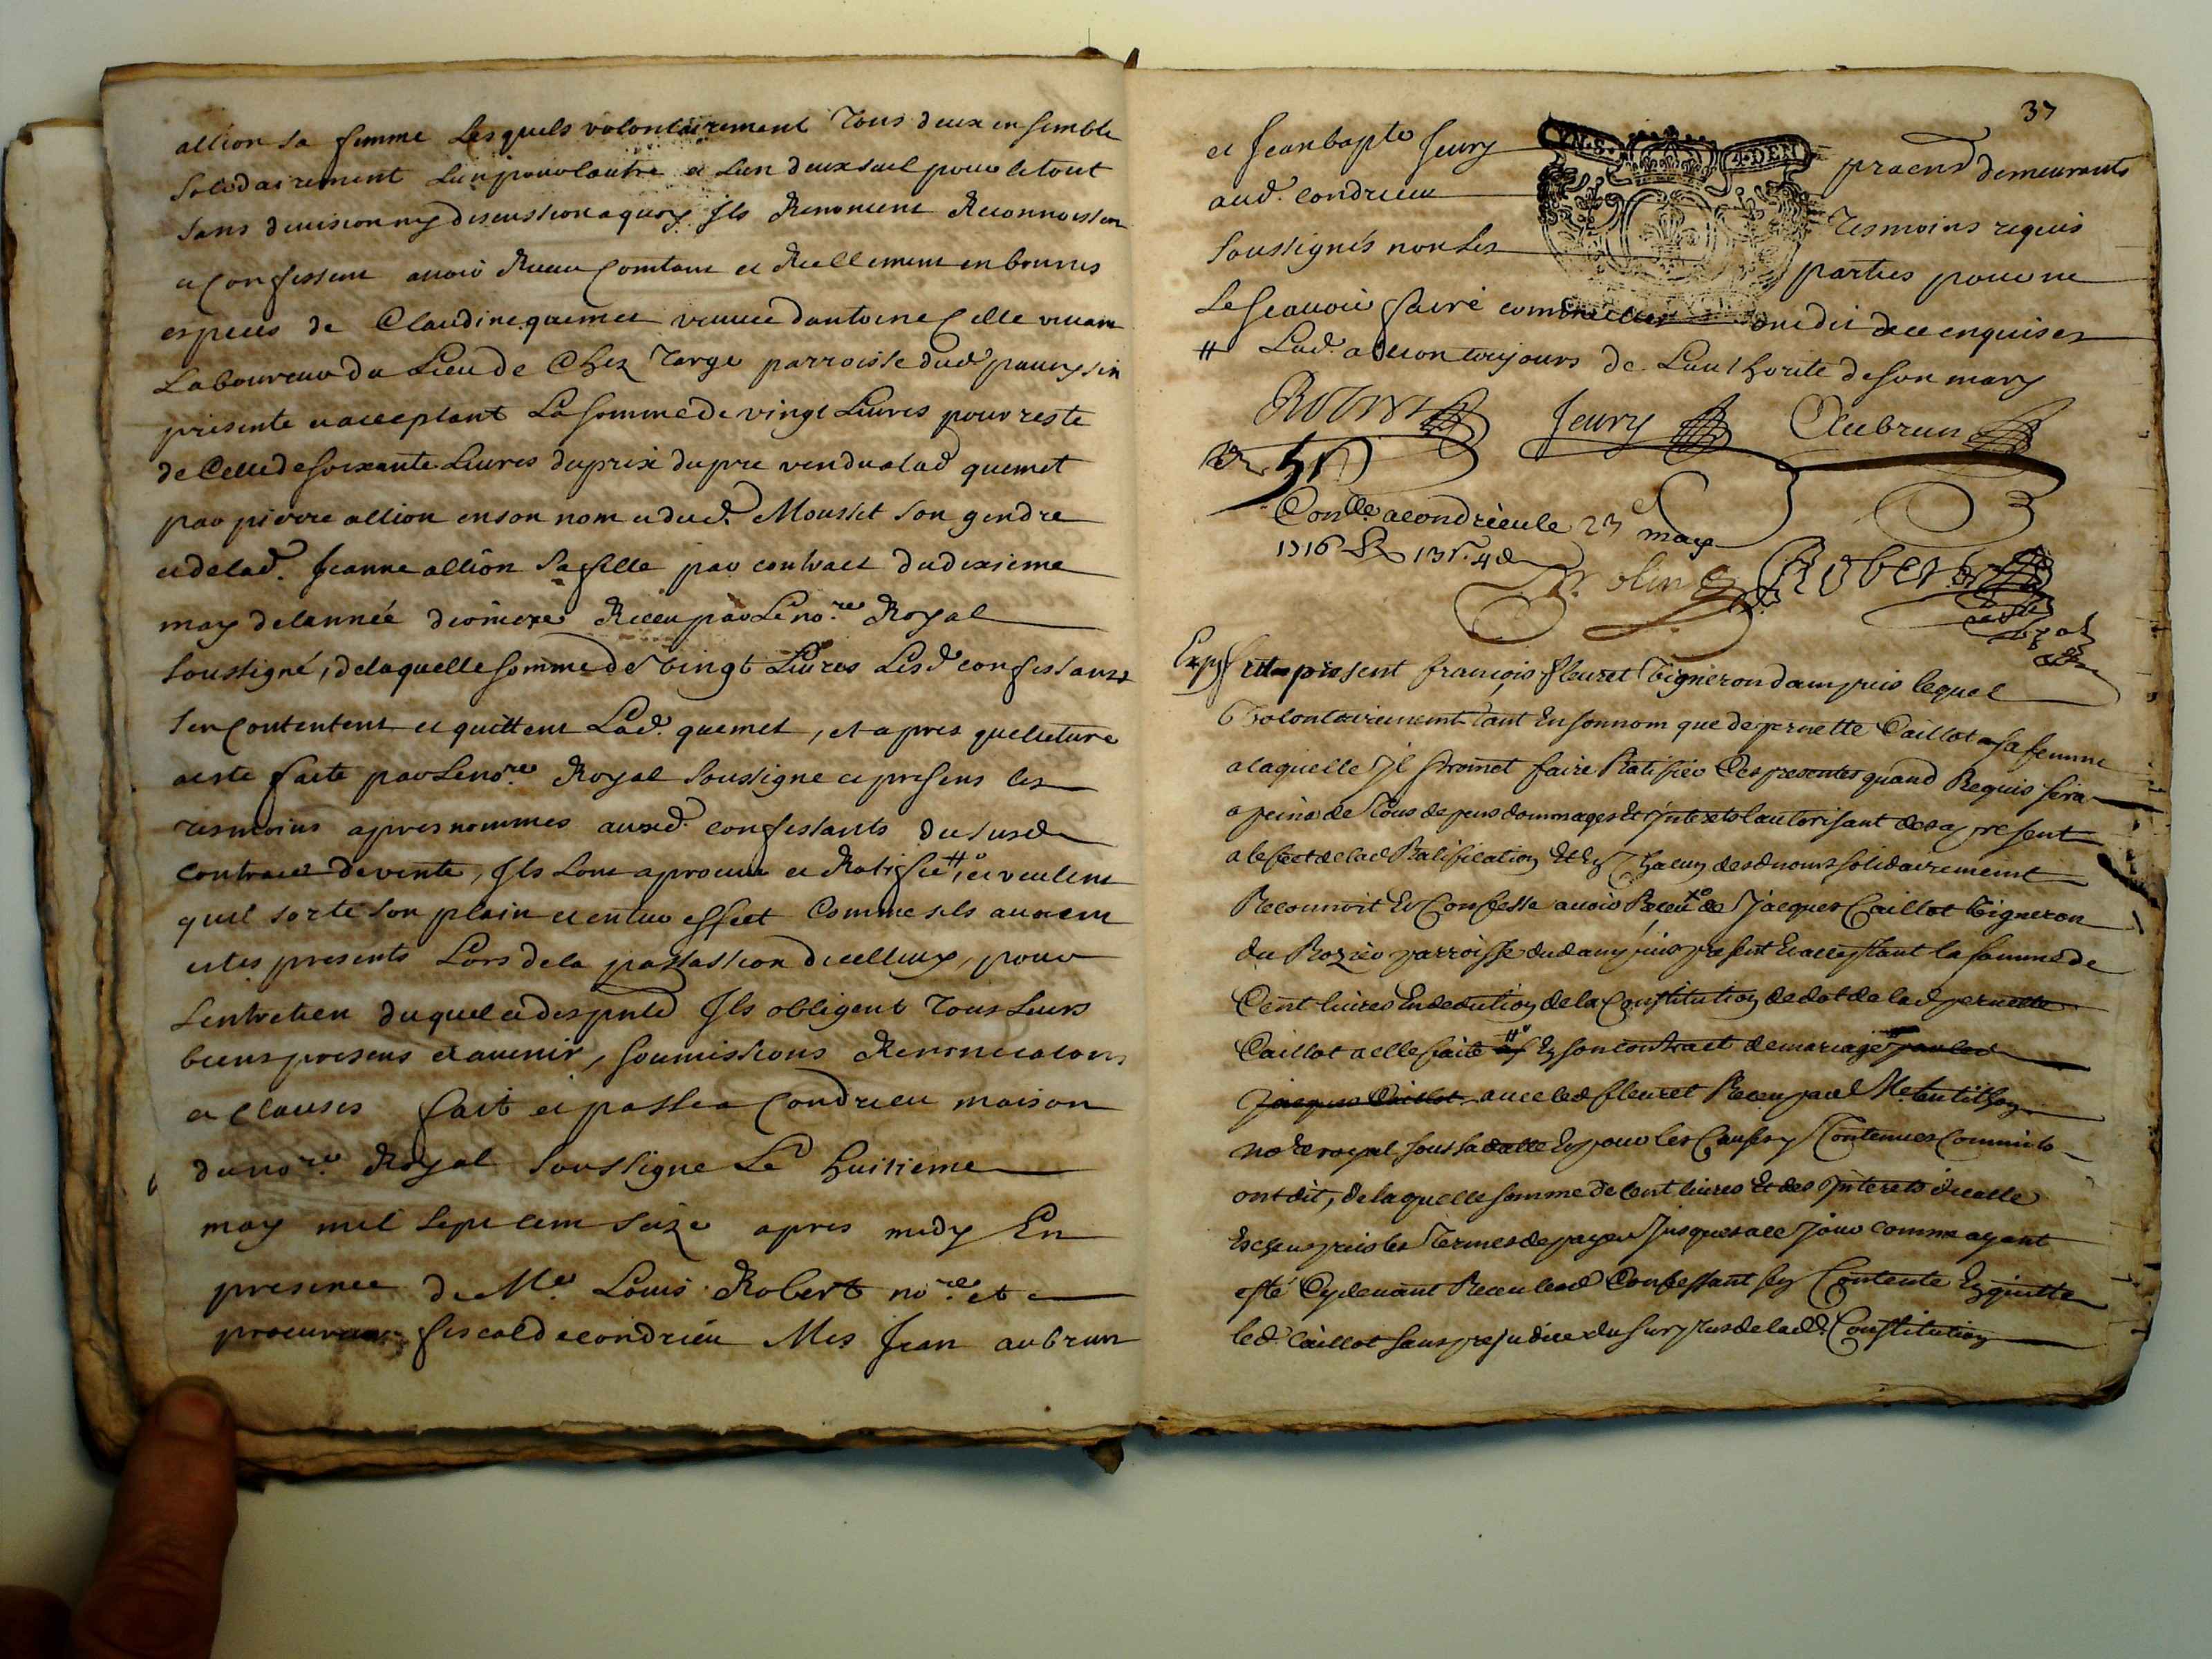 allion sa femme Lesquels volontairement Tous deux ensemble
solidairement Lun pour lautre et lun deux seul pour le tout
sans division ny discussion a quoy Ils Renoncent Reconnoissent
et Confessent avoir Receu Comtant et Reellement en bonnes
especes de Claudine quemet veuve dantoine Celle vivant
Laboureur du Lieu de Chez Targe parroisse dud
presente et acceptant La somme de vingt Livres pour reste
de Celle de soixante Livres du prix du pre vendu a lad quemet
par pierre allion en son nom et dud. Mousset son gendre
et de lad. Jeanne allion sa fille par contract du dixieme
may de lannée derniere Receu par Le nore Royal
soussigné, de laquelle somme de vingt Livres Lesd confessants
sen Contentent et quittent Lad. quemet, et apres que lecture
a esté faite par le nore Royal soussigne et presens les
tesmoins apres nommes auxd. confessants du susd
contract de vente, Ils Lont aprouvé et Ratiffié #, et veulent
quil sorte son plain et entier effect Comme sils avoient
estes presents Lors de la passassion dicelluy, pour
Lentretien duquel et des pntes Ils obligent Tous Leurs
biens presens et avenir, soumissions Renonciations
et clauses fait et passé a Condrieu maison
du nore Royal soussigne Le huitieme
may mil sept cent seize apres midy En
presence de Me Louis Robert nore et
procureur fiscal de condrieu Mes Jean aubrun
37
et Jean bapte Jeury praens demeurants
aud. condrieu Tesmoins requis
soussignés non Les parties pour ne
Le scavoir faire comme elles ont dit de ce enquises
# Lad. allion toujours de Lauthorité de son mary
Robert Jeury Aubrun
Conlle a condrieu le 23e may
1716 R 13s. 4d
Robert
Exp fut present françois fleuret Vigneron dampuis lequel
Volontairement tant En son nom que de pernette Caillot sa femme
a laquelle Il promet faire Ratifier Ces presentes quand Requis sera
a peine de Tous depens dommages et Interets lautorisant des a present
a leffect de lad Ratification Et En Chacun desd noms solidairement
Reconnoit Et Confesse avoir Receu de Jacques Caillot Vigneron
du Rozier parroisse dud ampuis present Et acceptant la somme de
Cent livres En deduction de la Constitution de dot de lad pernette
Caillot a elle faite En son contract de mariage par led
Jacques Caillot avec led fleuret Receu par Me
nore royal sous sa datte Et pour les Causes y Contenues Comme ils
ont dit, de laquelle somme de Cent livres Et des Interets dicelle
Escheus puis les Termes de payer Jusques a ce Jour comme ayant
esté Cydevant Receu led Confessant sen Contente En quitte
led Caillot sans prejudice du surplus de lad. Constitution